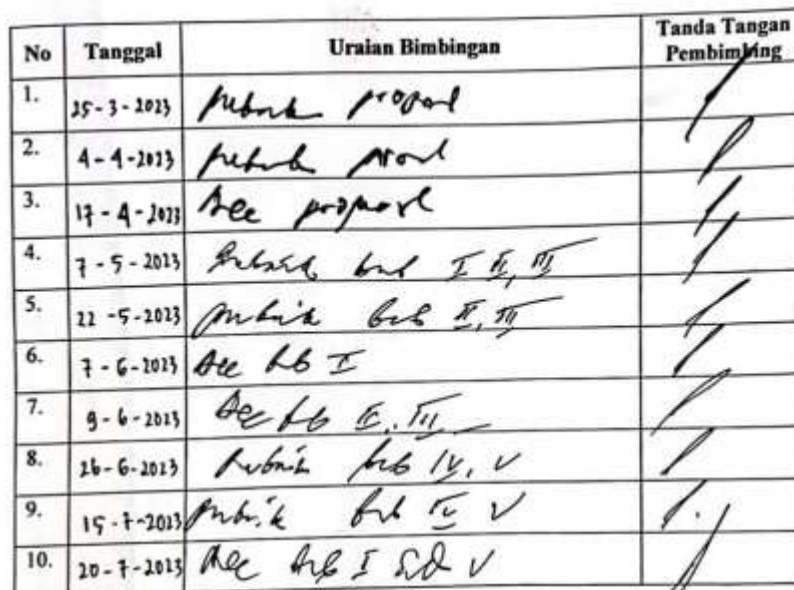 No Tanggal Uraian Bimbingan Tanda Tangan Pembimbing
1. 25-3-2023 perbaik proposal
2. 4-4-2023 perbaik
3. 17-4-2023 Acc proposal
4. 7-5-2023 perbaik bab I II, III
5. 22-5-2023 perbaik bab II, III
6. 7-6-2023 Acc bab I
7. 9-6-2023 Acc bab II, III
8. 26-6-2023 perbaik bab IV, V
9. 15-7-2023 perbaik bab IV V
10. 20-7-2023 Acc bab I s.d V